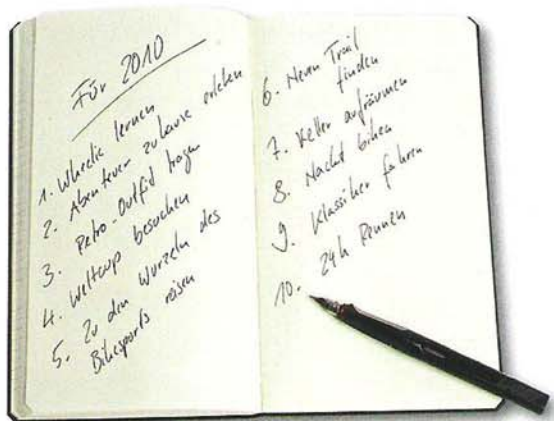 Für 2010
1. Wheelie lernen
2. Abenteuer zuhause erleben
3. Retro-Outfid tragen
4. Weltcup besuchen
5. Zu den Wurzeln des
Bikesports reisen
6. Neuen Trail
finden
7. Keller aufräumen
8. Nacht biken
9. Klassiker fahren
10. 24h Rennen